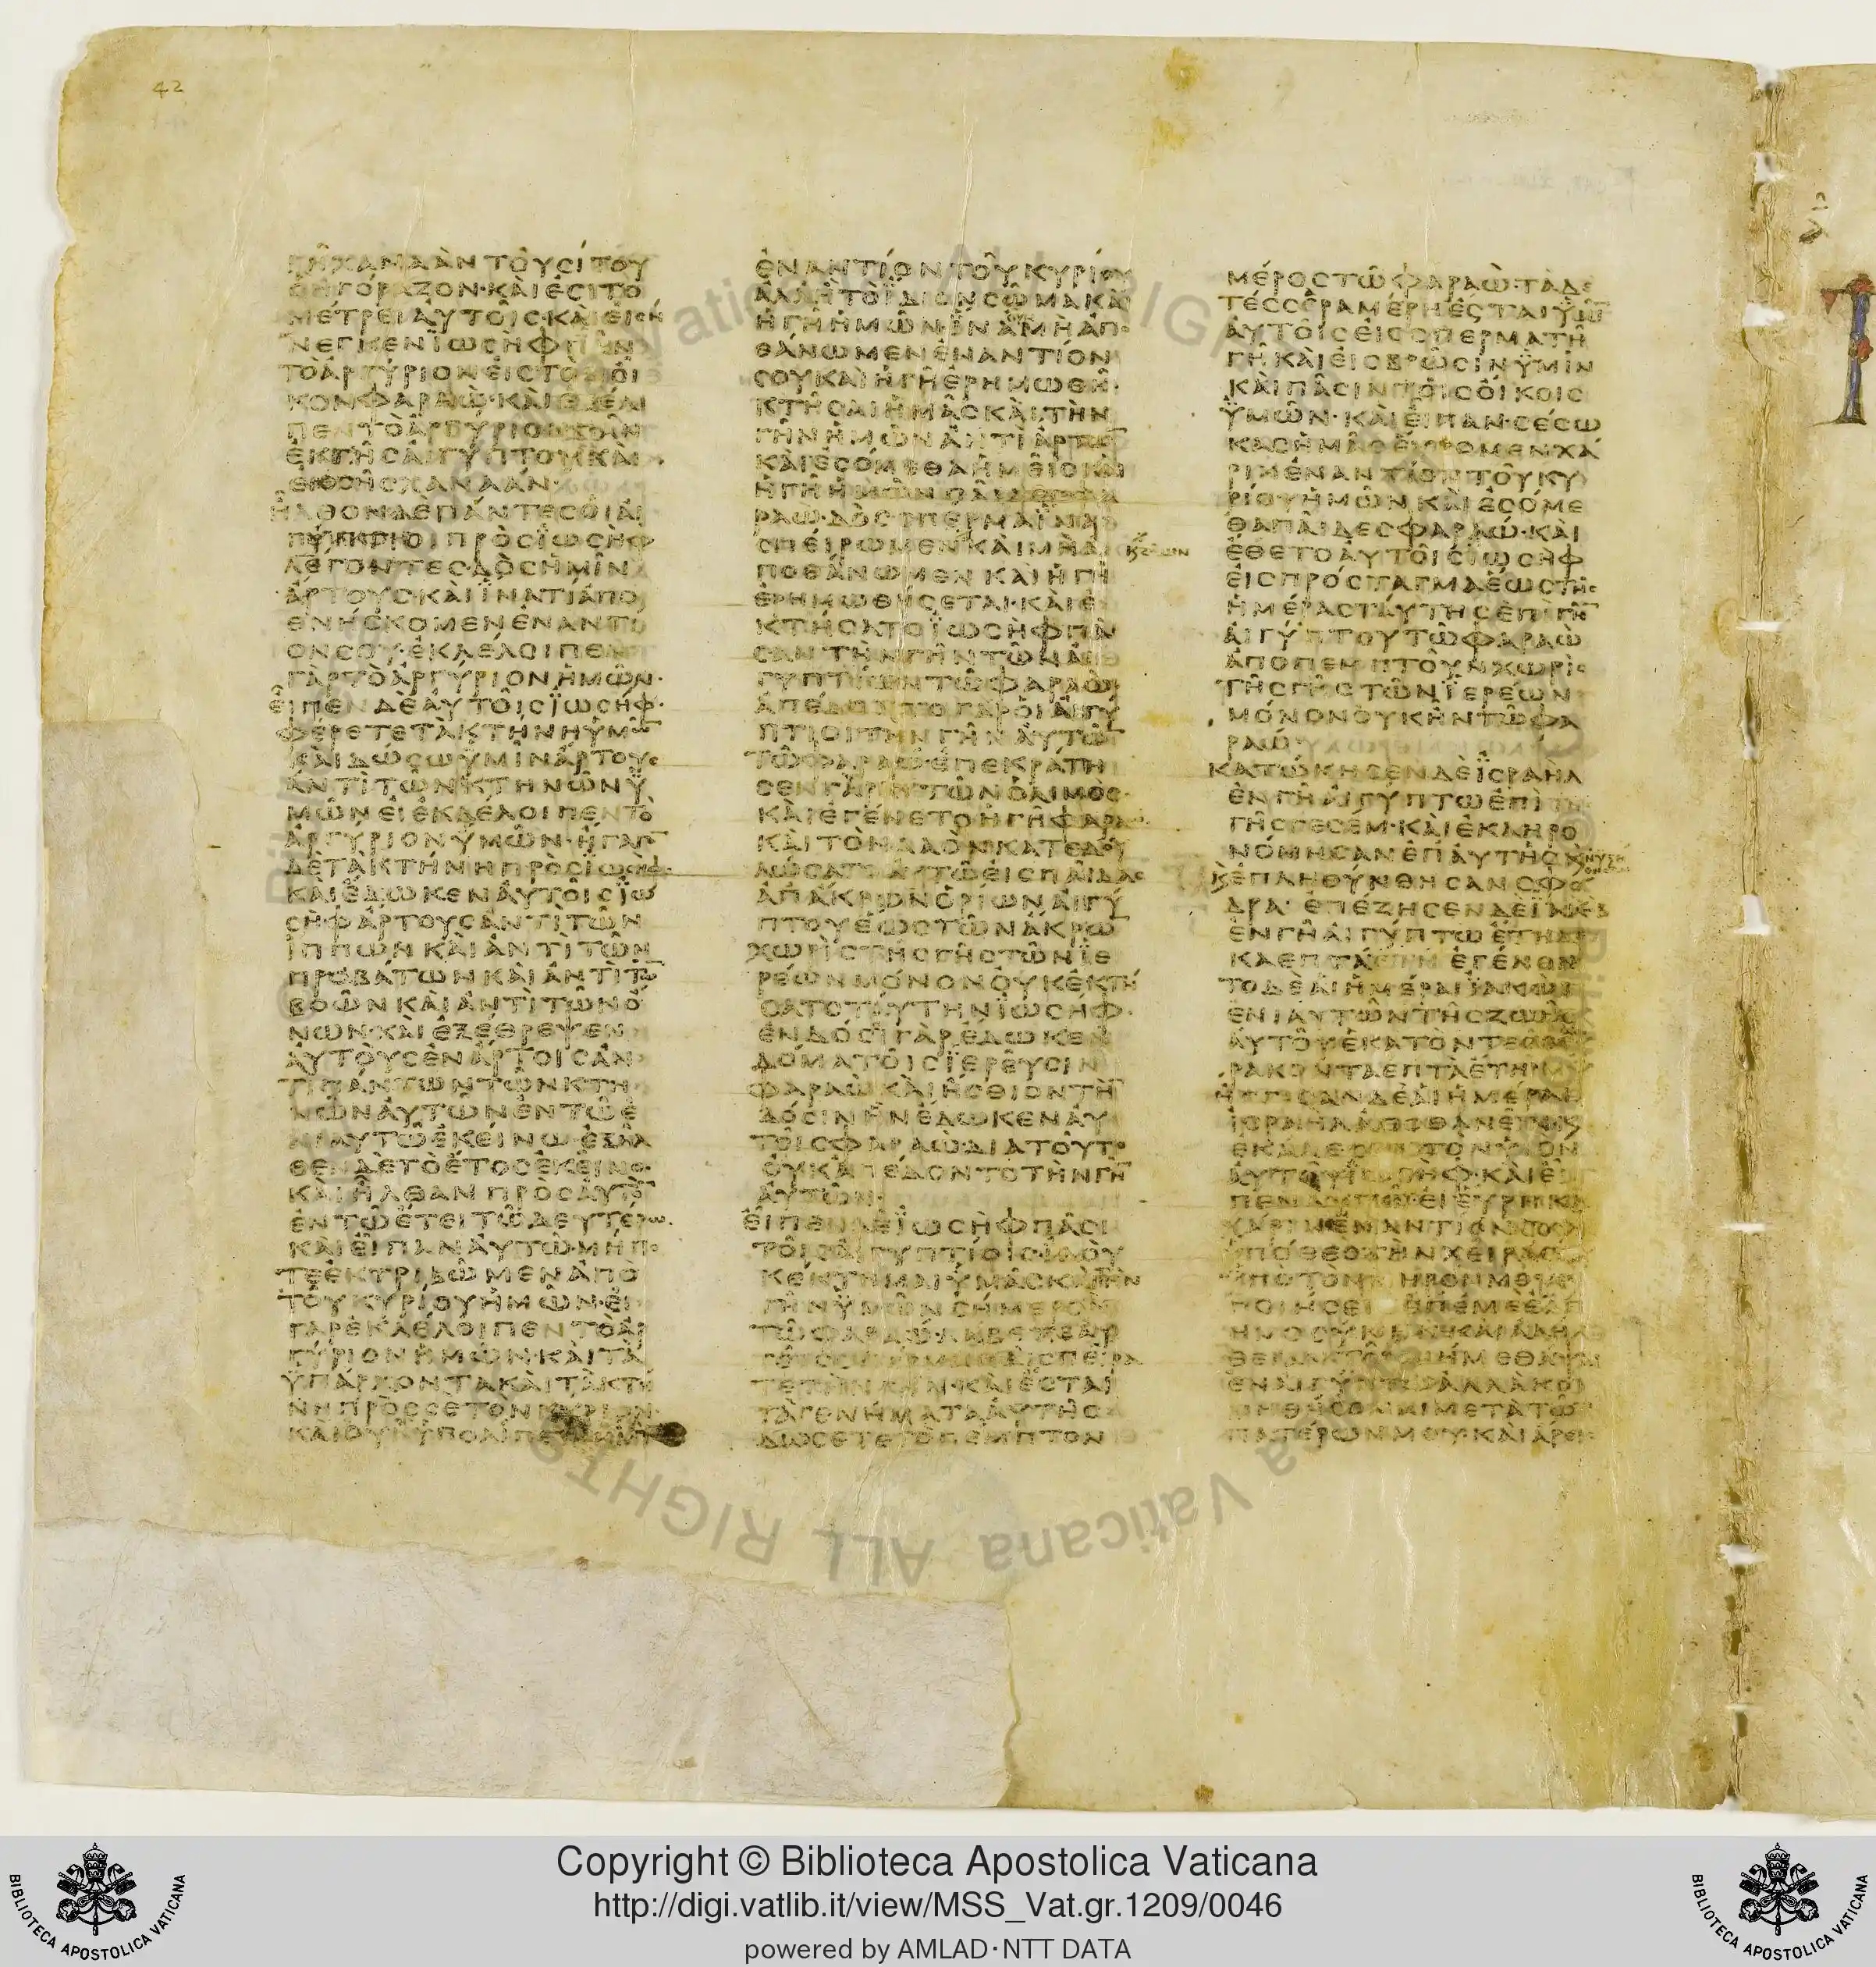 42
ΓΗ ΧΑΝΑΑΝ ΤΟΥ ϹΙΤΟΥ
ΟΥ ΗΓΟΡΑΖΟΝ · ΚΑΙ ΕϹΙΤΟ
ΜΕΤΡΕΙ ΑΥΤΟΙϹ · ΚΑΙ ΕΙϹΗ
ΝΕΓΚΕΝ ΙΩϹΗΦ ΠΑΝ
ΤΟ ΑΡΓΥΡΙΟΝ ΕΙϹ ΤΟΝ ΟΙ
ΚΟΝ ΦΑΡΑΩ · ΚΑΙ ΕΞΕΛΙ
ΠΕΝ ΤΟ ΑΡΓΥΡΙΟΝ ΠΑΝ
ΕΚ ΓΗϹ ΑΙΓΥΠΤΟΥ ΚΑΙ
ΕΚ ΓΗϹ ΧΑΝΑΑΝ ·
ΗΛΘΟΝ ΔΕ ΠΑΝΤΕϹ ΟΙ ΑΙ
ΓΥΠΤΙΟΙ ΠΡΟϹ ΙΩϹΗΦ
ΛΕΓΟΝΤΕϹ · ΔΟϹ ΗΜΙΝ
ΑΡΤΟΥϹ ΚΑΙ ΙΝΑ ΤΙ ΑΠΟ
ΘΝΗϹΚΟΜΕΝ ΕΝΑΝΤΙ
ΟΝ ϹΟΥ · ΕΚΛΕΛΟΙΠΕΝ
ΓΑΡ ΤΟ ΑΡΓΥΡΙΟΝ ΗΜΩΝ ·
ΕΙΠΕΝ ΔΕ ΑΥΤΟΙϹ ΙΩϹΗΦ ·
ΦΕΡΕΤΕ ΤΑ ΚΤΗΝΗ ΥΜΩ̅
ΚΑΙ ΔΩϹΩ ΥΜΙΝ ΑΡΤΟΥϹ
ΑΝΤΙ ΤΩΝ ΚΤΗΝΩΝ Υ
ΜΩΝ ΕΙ ΕΚΛΕΛΟΙΠΕΝ ΤΟ
ΑΡΓΥΡΙΟΝ ΥΜΩΝ · ΗΓΑΓΟ̅
ΔΕ ΤΑ ΚΤΗΝΗ ΠΡΟϹ ΙΩϹΗΦ ·
ΚΑΙ ΕΔΩΚΕΝ ΑΥΤΟΙϹ ΙΩ
ϹΗΦ ΑΡΤΟΥϹ ΑΝΤΙ ΤΩΝ
ΙΠΠΩΝ ΚΑΙ ΑΝΤΙ ΤΩΝ
ΠΡΟΒΑΤΩΝ ΚΑΙ ΑΝΤΙ ΤΩ̅
ΒΟΩΝ ΚΑΙ ΑΝΤΙ ΤΩΝ Ο
ΝΩΝ · ΚΑΙ ΕΞΕΘΡΕΨΕΝ
ΑΥΤΟΥϹ ΕΝ ΑΡΤΟΙϹ ΑΝ
ΤΙ ΠΑΝΤΩΝ ΤΩΝ ΚΤΗ
ΝΩΝ ΑΥΤΩΝ ΕΝ ΤΩ Ε
ΝΙΑΥΤΩ ΕΚΕΙΝΩ · ΕΞΗΛ
ΘΕΝ ΔΕ ΤΟ ΕΤΟϹ ΕΚΕΙΝΟ ·
ΚΑΙ ΗΛΘΑΝ ΠΡΟϹ ΑΥΤΟ̅
ΕΝ ΤΩ ΕΤΕΙ ΤΩ ΔΕΥΤΕΡΩ ·
ΚΑΙ ΕΙΠΑΝ ΑΥΤΩ · ΜΗ ΠΟ
ΤΕ ΕΚΤΡΙΒΩΜΕΝ ΑΠΟ
ΤΟΥ ΚΥΡΙΟΥ ΗΜΩΝ · ΕΙ
ΓΑΡ ΕΚΛΕΛΟΙΠΕΝ ΤΟ ΑΡ
ΓΥΡΙΟΝ ΗΜΩΝ · ΚΑΙ ΤΑ
ΥΠΑΡΧΟΝΤΑ ΚΑΙ ΤΑ ΚΤΗ
ΝΗ ΠΡΟϹ ϹΕ ΤΟΝ ΚΥΡΙΟΝ ·
ΚΑΙ ΟΥΧ ΥΠΟΛΙΠΕΤΑΙ ΗΜΙ̅
ΕΝΑΝΤΙΟΝ ΤΟΥ ΚΥΡΙΟΥ
ΑΛΛ Η ΤΟ ΙΔΙΟΝ ϹΩΜΑ ΚΑΙ
Η ΓΗ ΗΜΩΝ · ΙΝΑ ΜΗ ΑΠΟ
ΘΑΝΩΜΕΝ ΕΝΑΝΤΙΟΝ
ϹΟΥ ΚΑΙ Η ΓΗ ΕΡΗΜΩΘΗ ·
ΚΤΗϹΑΙ ΗΜΑϹ ΚΑΙ ΤΗΝ
ΓΗΝ ΗΜΩΝ ΑΝΤΙ ΑΡΤΩ̅
ΚΑΙ ΕϹΟΜΕΘΑ ΗΜΕΙϹ ΚΑΙ
Η ΓΗ ΗΜΩΝ ΠΑΙΔΕϹ ΦΑ
ΡΑΩ · ΔΟϹ ϹΠΕΡΜΑ ΙΝΑ
ϹΠΕΙΡΩΜΕΝ ΚΑΙ ΜΗ Α
ΠΟΘΑΝΩΜΕΝ ΚΑΙ Η ΓΗ
ΕΡΗΜΩΘΗϹΕΤΑΙ · ΚΑΙ Ε
ΚΤΗϹΑΤΟ ΙΩϹΗΦ ΠΑ
ϹΑΝ ΤΗΝ ΓΗΝ ΤΩΝ ΑΙ
ΓΥΠΤΙΩΝ ΤΩ ΦΑΡΑΩ ·
ΑΠΕΔΟΝΤΟ ΓΑΡ ΟΙ ΑΙΓΥ
ΠΤΙΟΙ ΤΗΝ ΓΗΝ ΑΥΤΩ̅
ΤΩ ΦΑΡΑΩ · ΕΠΕΚΡΑΤΗ
ϹΕΝ ΓΑΡ ΑΥΤΩΝ Ο ΛΙΜΟϹ ·
ΚΑΙ ΕΓΕΝΕΤΟ Η ΓΗ ΦΑΡΑΩ ·
ΚΑΙ ΤΟΝ ΛΑΟΝ ΚΑΤΕΔΟΥ
ΛΩϹΑΤΟ ΑΥΤΩ ΕΙϹ ΠΑΙΔΑϹ
ΑΠ ΑΚΡΩΝ ΟΡΙΩΝ ΑΙΓΥ
ΠΤΟΥ ΕΩϹ ΤΩΝ ΑΚΡΩ̅
ΧΩΡΙϹ ΤΗϹ ΓΗϹ ΤΩΝ ΙΕ
ΡΕΩΝ ΜΟΝΟΝ ΟΥΚ ΕΚΤΗ
ϹΑΤΟ ΤΑΥΤΗΝ ΙΩϹΗΦ ·
ΕΝ ΔΟϹΙ ΓΑΡ ΕΔΩΚΕΝ
ΔΟΜΑ ΤΟΙϹ ΙΕΡΕΥϹΙΝ
ΦΑΡΑΩ ΚΑΙ ΗϹΘΙΟΝ ΤΗ̅
ΔΟϹΙΝ ΗΝ ΕΔΩΚΕΝ ΑΥ
ΤΟΙϹ ΦΑΡΑΩ · ΔΙΑ ΤΟΥΤΟ
ΟΥΚ ΑΠΕΔΟΝΤΟ ΤΗΝ ΓΗ̅
ΑΥΤΩΝ ·
ΕΙΠΕΝ ΔΕ ΙΩϹΗΦ ΠΑϹΙ
ΤΟΙϹ ΑΙΓΥΠΤΙΟΙϹ · ΙΔΟΥ
ΚΕΚΤΗΜΑΙ ΥΜΑϹ ΚΑΙ ΤΗΝ
ΓΗΝ ΥΜΩΝ ϹΗΜΕΡΟΝ
ΤΩ ΦΑΡΑΩ · ΛΑΒΕΤΕ ΕΑΥ
ΤΟΙϹ ϹΠΕΡΜΑ ΚΑΙ ϹΠΕΙΡΑ
ΤΕ ΤΗΝ ΓΗΝ · ΚΑΙ ΕϹΤΑΙ
ΤΑ ΓΕΝΗΜΑΤΑ ΑΥΤΗϹ
ΔΩϹΕΤΕ ΤΟ ΠΕΜΠΤΟΝ
ΜΕΡΟϹ ΤΩ ΦΑΡΑΩ · ΤΑ ΔΕ
ΤΕϹϹΕΡΑ ΜΕΡΗ ΕϹΤΑΙ ΥΜΙ̅
ΑΥΤΟΙϹ ΕΙϹ ϹΠΕΡΜΑ ΤΗ
ΓΗ ΚΑΙ ΕΙϹ ΒΡΩϹΙΝ ΥΜΙΝ
ΚΑΙ ΠΑϹΙΝ ΤΟΙϹ ΟΙΚΟΙϹ
ΥΜΩΝ · ΚΑΙ ΕΙΠΑΝ · ϹΕϹΩ
ΚΑϹ ΗΜΑϹ ΕΥΡΟΜΕΝ ΧΑ
ΡΙΝ ΕΝΑΝΤΙΟΝ ΤΟΥ ΚΥ
ΡΙΟΥ ΗΜΩΝ ΚΑΙ ΕϹΟΜΕ
ΘΑ ΠΑΙΔΕϹ ΦΑΡΑΩ · ΚΑΙ
ΕΘΕΤΟ ΑΥΤΟΙϹ ΙΩϹΗΦ
ΕΙϹ ΠΡΟϹΤΑΓΜΑ ΕΩϹ ΤΗϹ
ΗΜΕΡΑϹ ΤΑΥΤΗϹ ΕΠΙ ΓΗ̅
ΑΙΓΥΠΤΟΥ ΤΩ ΦΑΡΑΩ
ΑΠΟΠΕΜΠΤΟΥΝ ΧΩΡΙϹ
ΤΗϹ ΓΗϹ ΤΩΝ ΙΕΡΕΩΝ
ΜΟΝΟΝ ΟΥΚ ΗΝ ΤΩ ΦΑ
ΡΑΩ ·
ΚΑΤΩΚΗϹΕΝ ΔΕ ΙϹΡΑΗΛ
ΕΝ ΓΗ ΑΙΓΥΠΤΩ ΕΠΙ
ΓΗϹ ΓΕϹΕΜ · ΚΑΙ ΕΚΛΗΡΟ
ΝΟΜΗϹΑΝ ΕΠ ΑΥΤΗϹ
ΕΠΛΗΘΥΝΘΗϹΑΝ ϹΦΟ
ΔΡΑ · ΕΠΕΖΗϹΕΝ ΔΕ ΙΑΚΩΒ
ΕΝ ΓΗ ΑΙΓΥΠΤΩ ΕΤΗ ΔΕ
ΚΑ ΕΠΤΑ ΕΓΕΝΟΝ
ΤΟ ΔΕ ΑΙ ΗΜΕΡΑΙ ΙΑΚΩΒ
ΕΝΙΑΥΤΩΝ ΤΗϹ ΖΩΗϹ
ΑΥΤΟΥ ΕΚΑΤΟΝ ΤΕϹϹΕ
ΡΑΚΟΝΤΑ ΕΠΤΑ ΕΤΗ
ΗΓΓΙϹΑΝ ΔΕ ΑΙ ΗΜΕΡΑΙ
ΙϹΡΑΗΛ ΑΠΟΘΑΝΕΙΝ Κ
ΕΚΑΛΕϹΕΝ ΤΟΝ ΥΙΟΝ
ΑΥΤΟΥ ΙΩϹΗΦ · ΚΑΙ ΕΙ
ΠΕΝ ΑΥΤΩ · ΕΙ ΕΥΡΗΚΑ
ΧΑΡΙΝ ΕΝΑΝΤΙΟΝ ϹΟΥ
ΥΠΟΘΕϹ ΤΗΝ ΧΕΙΡΑ ϹΟΥ
ΥΠΟ ΤΟΝ ΜΗΡΟΝ ΜΟΥ
ΠΟΙΗϹΕΙϹ ΕΠ ΕΜΕ ΕΛΕ
ΗΜΟϹΥΝΗΝ ΚΑΙ ΑΛΗ
ΘΕΙΑΝ ΤΟΥ ΜΗ ΜΕ ΘΑΨΑΙ
ΕΝ ΑΙΓΥΠΤΩ ΑΛΛΑ ΚΟΙ
ΜΗΘΗϹΟΜΑΙ ΜΕΤΑ ΤΩ̅
ΠΑΤΕΡΩΝ ΜΟΥ · ΚΑΙ ΑΡΕΙϹ
Copyright © Biblioteca Apostolica Vaticana
http://digi.vatlib.it/view/MSS_Vat.gr.1209/0046
powered by AMLAD·NTT DATA
BIBLIOTECA APOSTOLICA VATICANA
BIBLIOTECA APOSTOLICA VATICANA